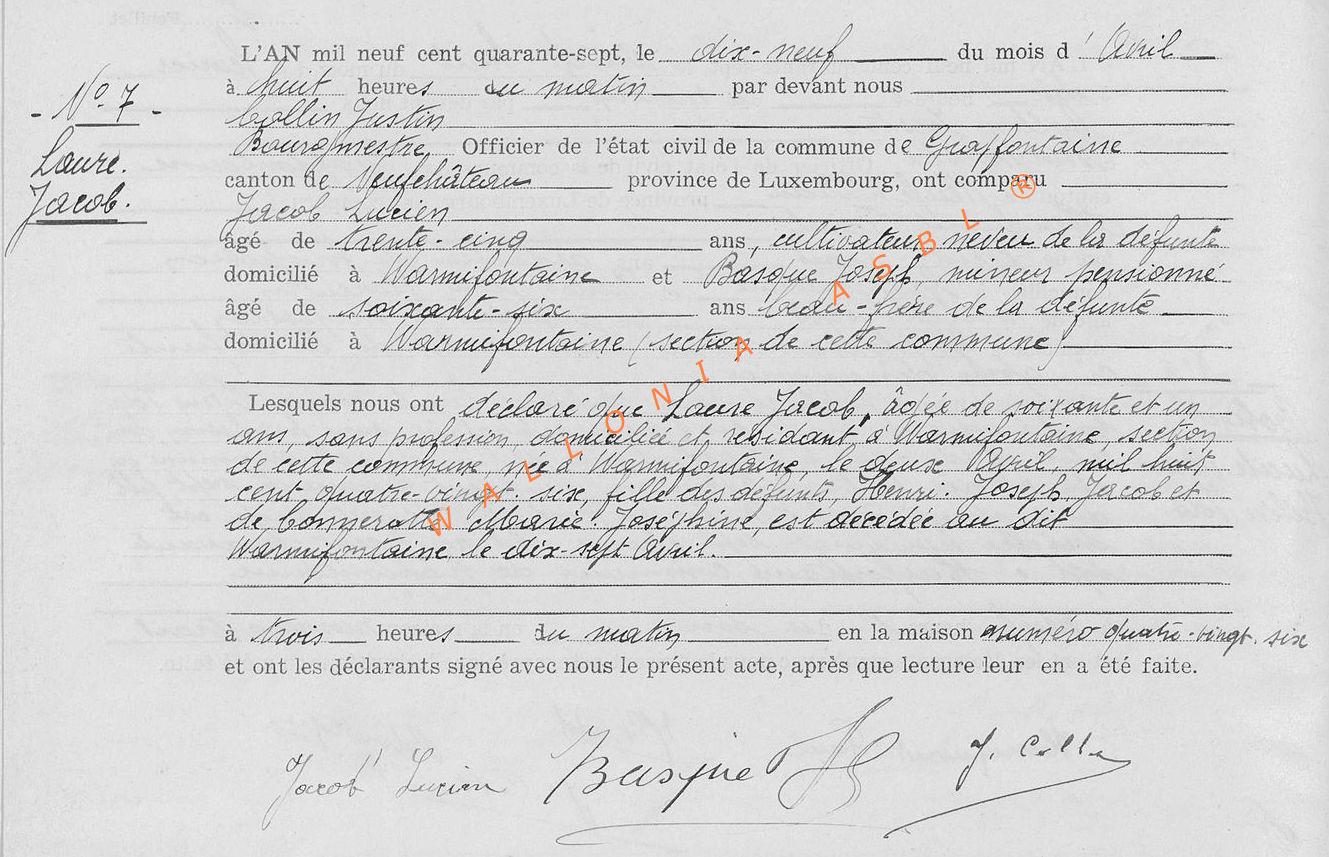 L'AN mil neuf cent quarante-sept, le dix-neuf du mois d' Avril
à huit heures du matin par devant nous
- No 7 -
Collin Justin
Laure.
Bourgmestre, Officier de l'état civil de la commune de Grapfontaine
canton de Neufchâteau province de Luxembourg, ont comparu
Jacob.
Jacob Lucien
âgé de trente-cinq ans, cultivateur neveu de la défunte
domicilié à Warmifontaine et Basque Joseph, mineur pensionné
âgé de soixante-six ans beau-frère de la défunte
domicilié à Warmifontaine (section de cette commune)
Lesquels nous ont déclaré que Laure Jacob, âgée de soixante et un
ans, sans profession, domiciliée et résidant à Warmifontaine, section
de cette commune, née à Warmifontaine, le deux Avril, mil huit
cent quatre-vingt-six, fille des défunts Henri-Joseph Jacob et
de Marie-Joséphine, est décédée au dit
Warmifontaine le dix-sept Avril.
à trois heures du matin en la maison numéro quatre-vingt-six
et ont les déclarants signé avec nous le présent acte, après que lecture leur en a été faite.
Jacob Lucien Basque J. Collin
WALLONIA ASBL ®